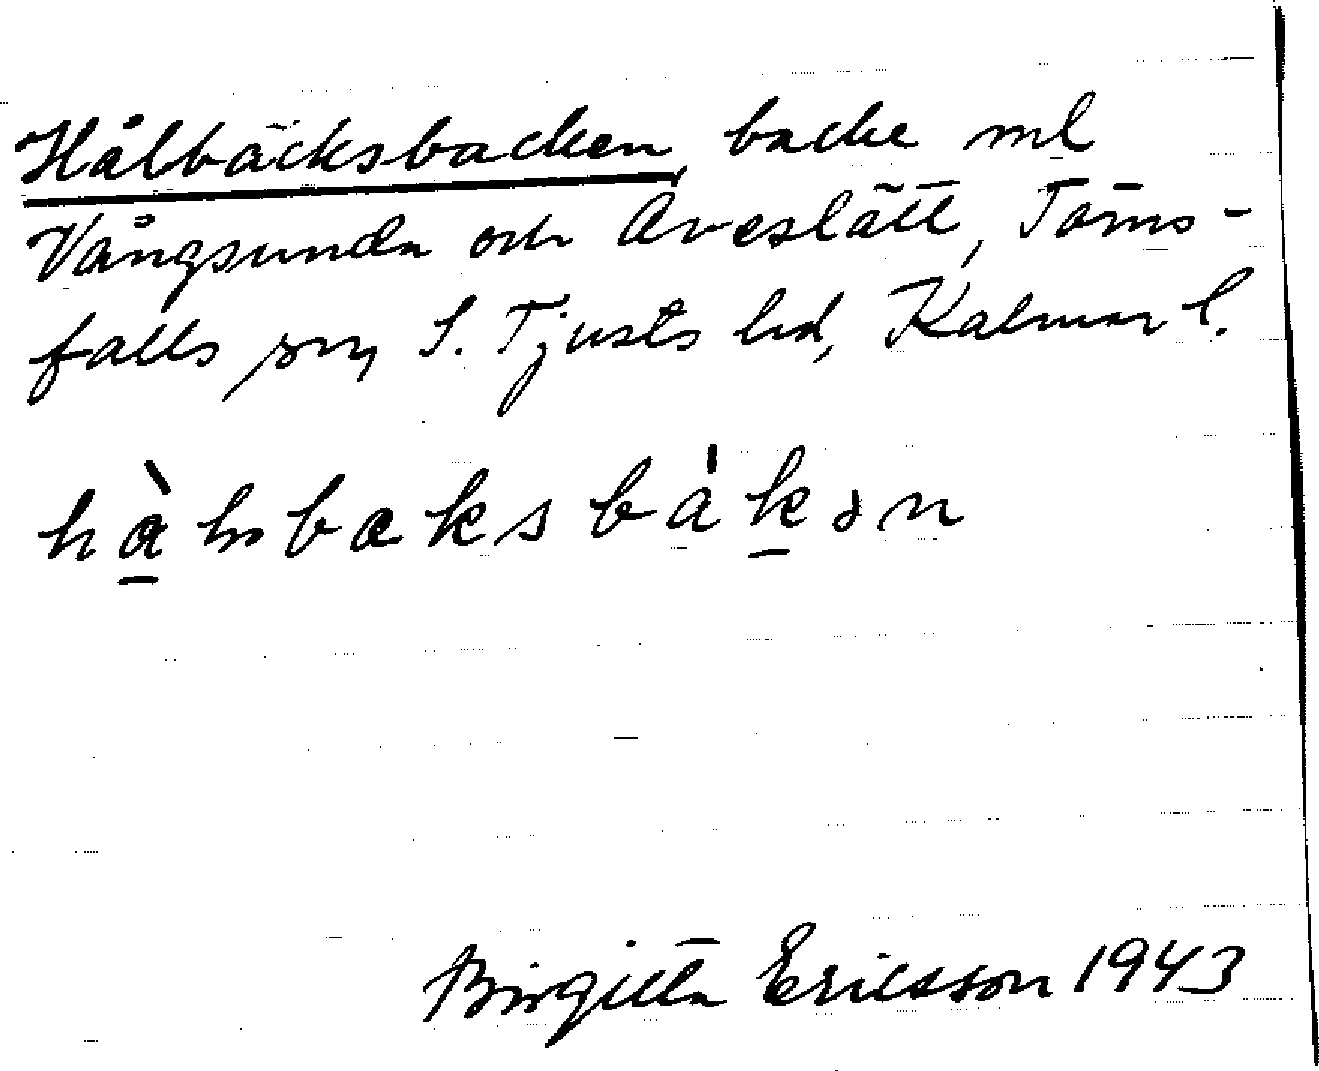 Hålbäcksbacken, backe ml
Vångsunda och Aveslätt, Törns-
falls sn, S. Tjusts hd, Kalmar l.
bákən
Birgitta Ericsson 1943